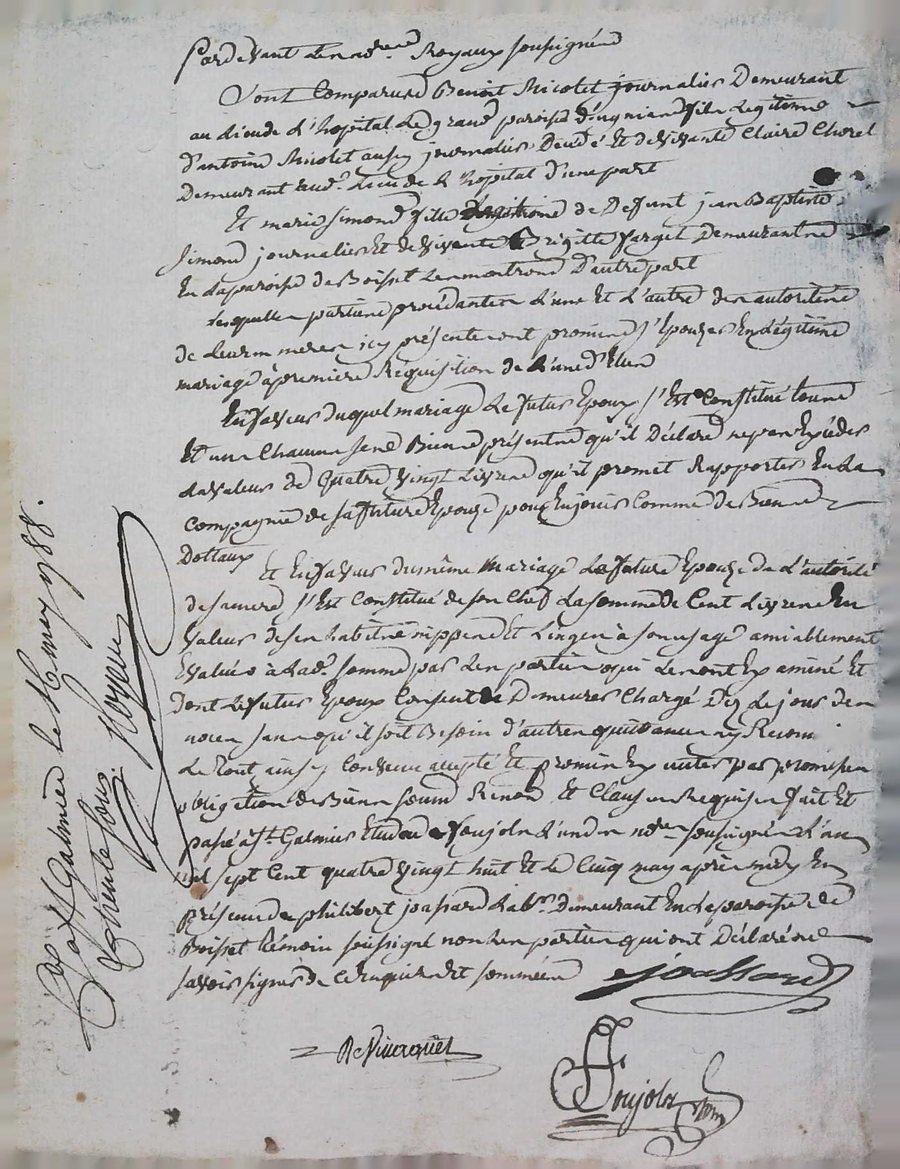 Pardevant les no.res Royaux soussignés
Sont Comparus Benoit Nicolet journalier Demeurant
au lieu de L'hopital Le grand paroisse d' fils Legitime
d'antoine Nicolet aussy journalier Décédé Et de vivante Claire Chorel
Demeurant aud. Lieu de L'hopital D'une part
Et marie simond fille Legitime de Deffunt jean Baptiste
simond journalier Et de vivante Brigitte farget Demeurantes
En La paroisse de Boisset Les montrond D'autre part
Lesquelles parties procédantes L'une Et L'autre des autorités
de Leurs meres icy présentes ont promis s'Epouser En Légitime
mariage à première Réquisition de L'une d'Elles
En faveur duquel mariage Le futur Epoux s'Est Constitué tous
Et un Chacun ses Biens présents qu'il Déclare ne pas Excéder
La valeur de Quatre vingt Livres qu'il promet Rapporter En La
Compagnie de sa future Epouse pour En jouir Comme de Biens
Dottaux
Et En faveur du même mariage La future Epouse de L'autorité
de sa mere s'Est Constitué de son Chef La somme de Cent Livres En
valeur de ses habits nippes Et Linges à son usage amiablement
Evalués à Lad. somme par Les parties qui Les ont Examiné Et
dont Le futur Epoux Consent de Demeurer Chargé Dès Le jour des
noces sans qu'il soit Besoin d'autres quittances ny
Le tout ainsy Convenu accepté Et promis Exécuter par promesses
obligation de Biens soumd. Renon. Et Clauses Requises fait Et
passé à St. Galmier Etude de foujols L'un des no.res soussignés L'an
mil sept Cent quatre vingt huit Et Le Cinq may après midy En
présence de philibert joassard Lab.r Demeurant En La paroisse de
Boisset témoin soussigné non Les parties qui ont Déclaré ne
savoir signer de ce Enquises Et sommées
joassard
foujols
à St Galmier le may 1788.
trente sous.